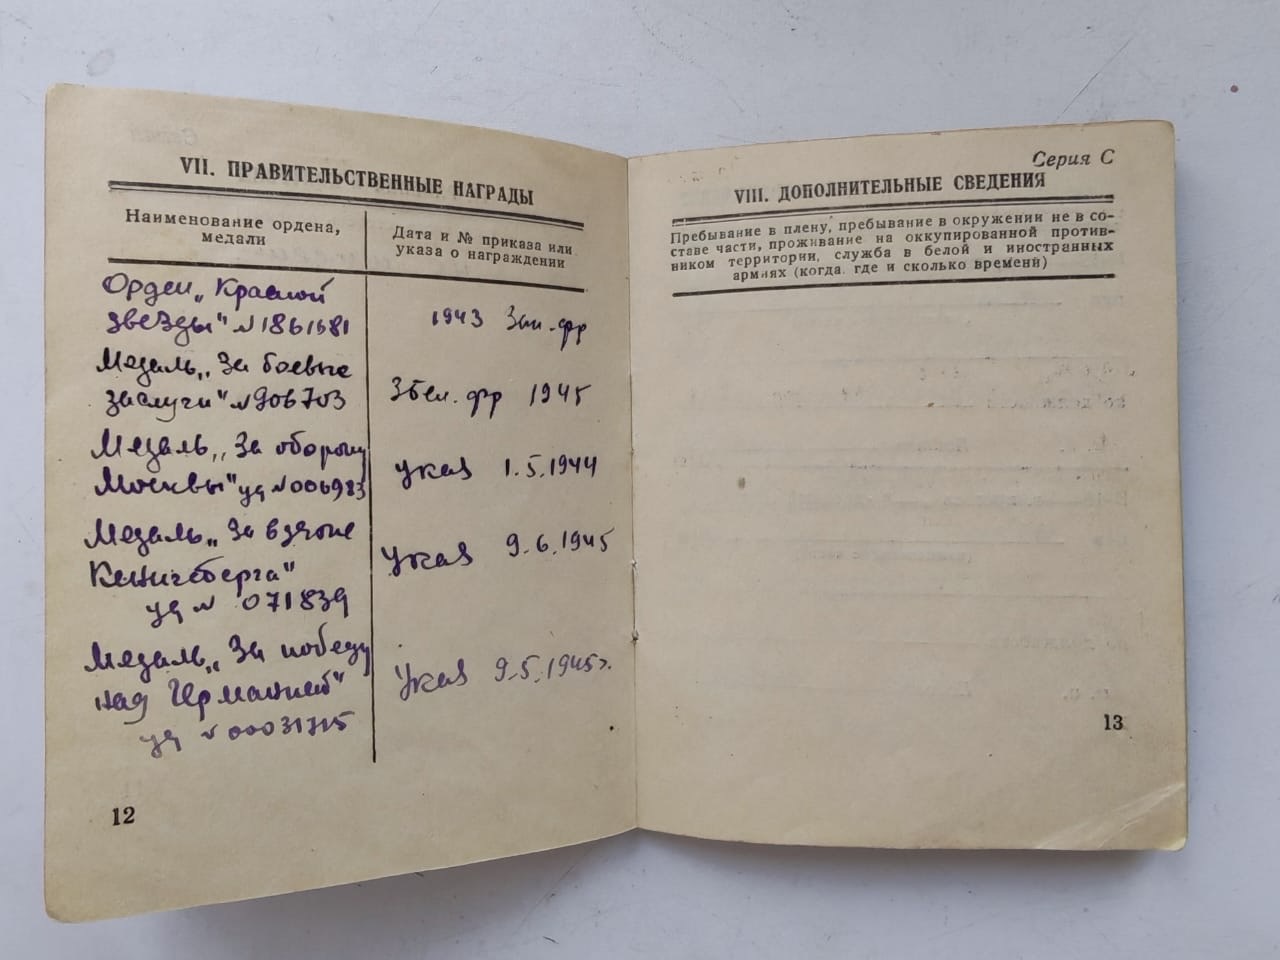 VII. ПРАВИТЕЛЬСТВЕННЫЕ НАГРАДЫ
Наименование ордена,
медали
Дата и № приказа или
указа о награждении
Орден „Красной
звезды" №1861681
1943 Зап. фр
Медаль „За боевые
заслуги" №906703
3 Бел. фр 1945
Медаль „За оборону
Москвы" уд №006983
Указ 1.5.1944
Медаль „За взятие
Кенигсберга"
уд № 071839
Указ 9.6.1945
Медаль „За победу
над Германией"
уд №
Указ 9.5.1945г.
12
Серия С
VIII. ДОПОЛНИТЕЛЬНЫЕ СВЕДЕНИЯ
Пребывание в плену, пребывание в окружении не в со-
ставе части, проживание на оккупированной против-
ником территории, служба в белой и иностранных
армиях (когда, где и сколько времени)
13